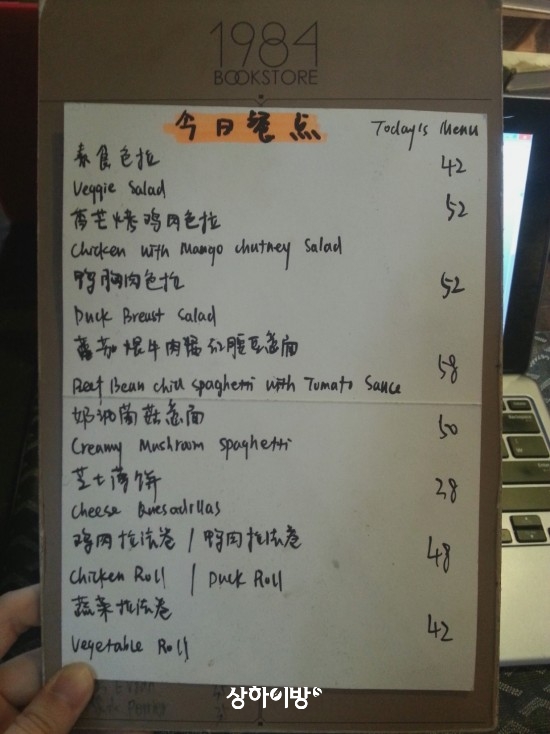 1984
BOOKSTORE
今日餐点 Today's Menu
素食色拉 42
Veggie Salad
香芒烤鸡肉色拉 52
Chicken with Mango Chutney Salad
鸭胸肉色拉 52
Duck Breast Salad
蕃茄 牛肉酱红腰豆意面 58
Beef Bean chili spaghetti with Tomato Sauce
奶油菌菇意面 50
Creamy Mushroom Spaghetti
芝士薄饼 38
Cheese Quesadillas
鸡肉拉法卷 / 鸭肉拉法卷 48
Chicken Roll / Duck Roll
蔬菜拉法卷 42
Vegetable Roll
상하이방